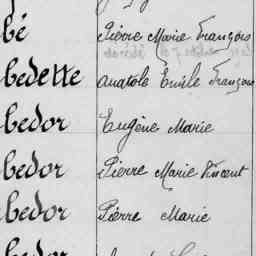 bé Pierre Marie François
bedette Anatole Emile François
bedor Eugène Marie
bedor Pierre Marie Vincent
bedor Pierre Marie
bedor